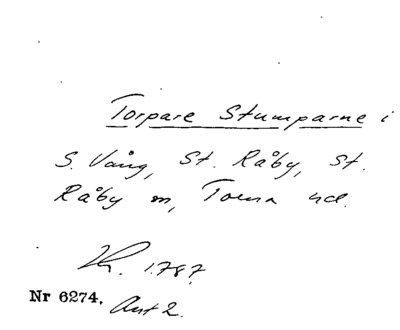 Torpare Stumparne i
S. Vång, St. Råby, St.
Råby sn, Torna hd.
Th. 1787.
Nr 6274. Ant 2.